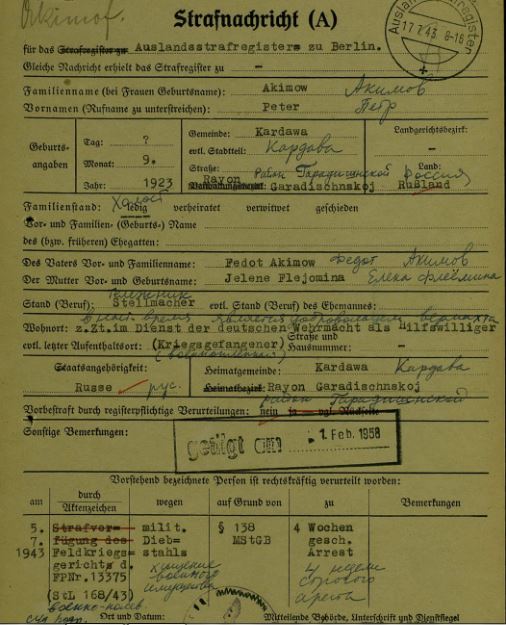 Akimof.
Strafnachricht (A)
Auslandsstrafregister
17.7.43. 8-16
für das Strafregister zu Auslandsstrafregisters zu Berlin.
Gleiche Nachricht erhielt das Strafregister zu —
Familienname (bei Frauen Geburtsname): Akimow Акимов
Vornamen (Rufname zu unterstreichen): Peter Петр
Geburts-angaben
Tag: ?
Monat: 9.
Jahr: 1923
Gemeinde: Kardawa
evtl. Stadtteil: Кардава
Straße: Район Гарадишенской
Rayon
Verwaltungsbezirk: Garadischnskoj
Landgerichtsbezirk:
—
Land: Россия
Rußland
Familienstand: Холост ledig verheiratet verwitwet geschieden
Vor- und Familien- (Geburts-) Name
des (bzw. früheren) Ehegatten:
Des Vaters Vor- und Familienname: Fedot Akimow Федот Акимов
Der Mutter Vor- und Geburtsname: Jelene Flejomina Елена Флеёмина
Stand (Beruf): Stellmacher evtl. Stand (Beruf) des Ehemannes:
Тележник
в наст. время является добровольцем вермахта
Wohnort: z.Zt.im Dienst der deutschen Wehrmacht als Hilfswilliger
evtl. letzter Aufenthaltsort: (Kriegsgefangener) Straße und Hausnummer: —
(военнопленный)
Staatsangehörigkeit:
Russe рус.
Heimatgemeinde: Kardawa Кардава
Heimatbezirk: Rayon Garadischnskoj
район Гарадишенской
Vorbestraft durch registerpflichtige Verurteilungen: nein ja — vgl. Rückseite
Sonstige Bemerkungen:
getilgt am 1. Feb. 1958
Vorstehend bezeichnete Person ist rechtskräftig verurteilt worden:
am durch Aktenzeichen wegen auf Grund von zu Bemerkungen
5. Strafver= milit. § 138 4 Wochen
7. fügung des Dieb= MStGB gesch.
1943 Feldkriegs= stahls Arrest
gerichts d. хищение 4 недели
FPNr.13375 военного строгого
(StL 168/43) имущества ареста
военно-полев.
Ort und Datum Mitteilende Behörde, Unterschrift und Dienstsiegel